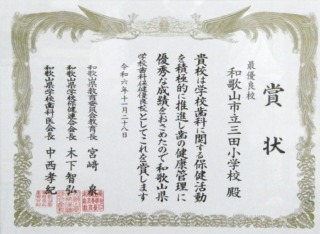 賞状
最優良校
和歌山市立三田小学校 殿
貴校は学校歯科に関する保健活動
を積極的に推進し歯の健康管理に
優秀な成績をおさめたので和歌山県
学校歯科保健優良校としてこれを賞します
令和六年十一月二十八日
和歌山県教育委員会教育長 宮﨑 泉
和歌山県学校保健連合会会長 木下智弘
和歌山県学校歯科医会会長 中西孝紀